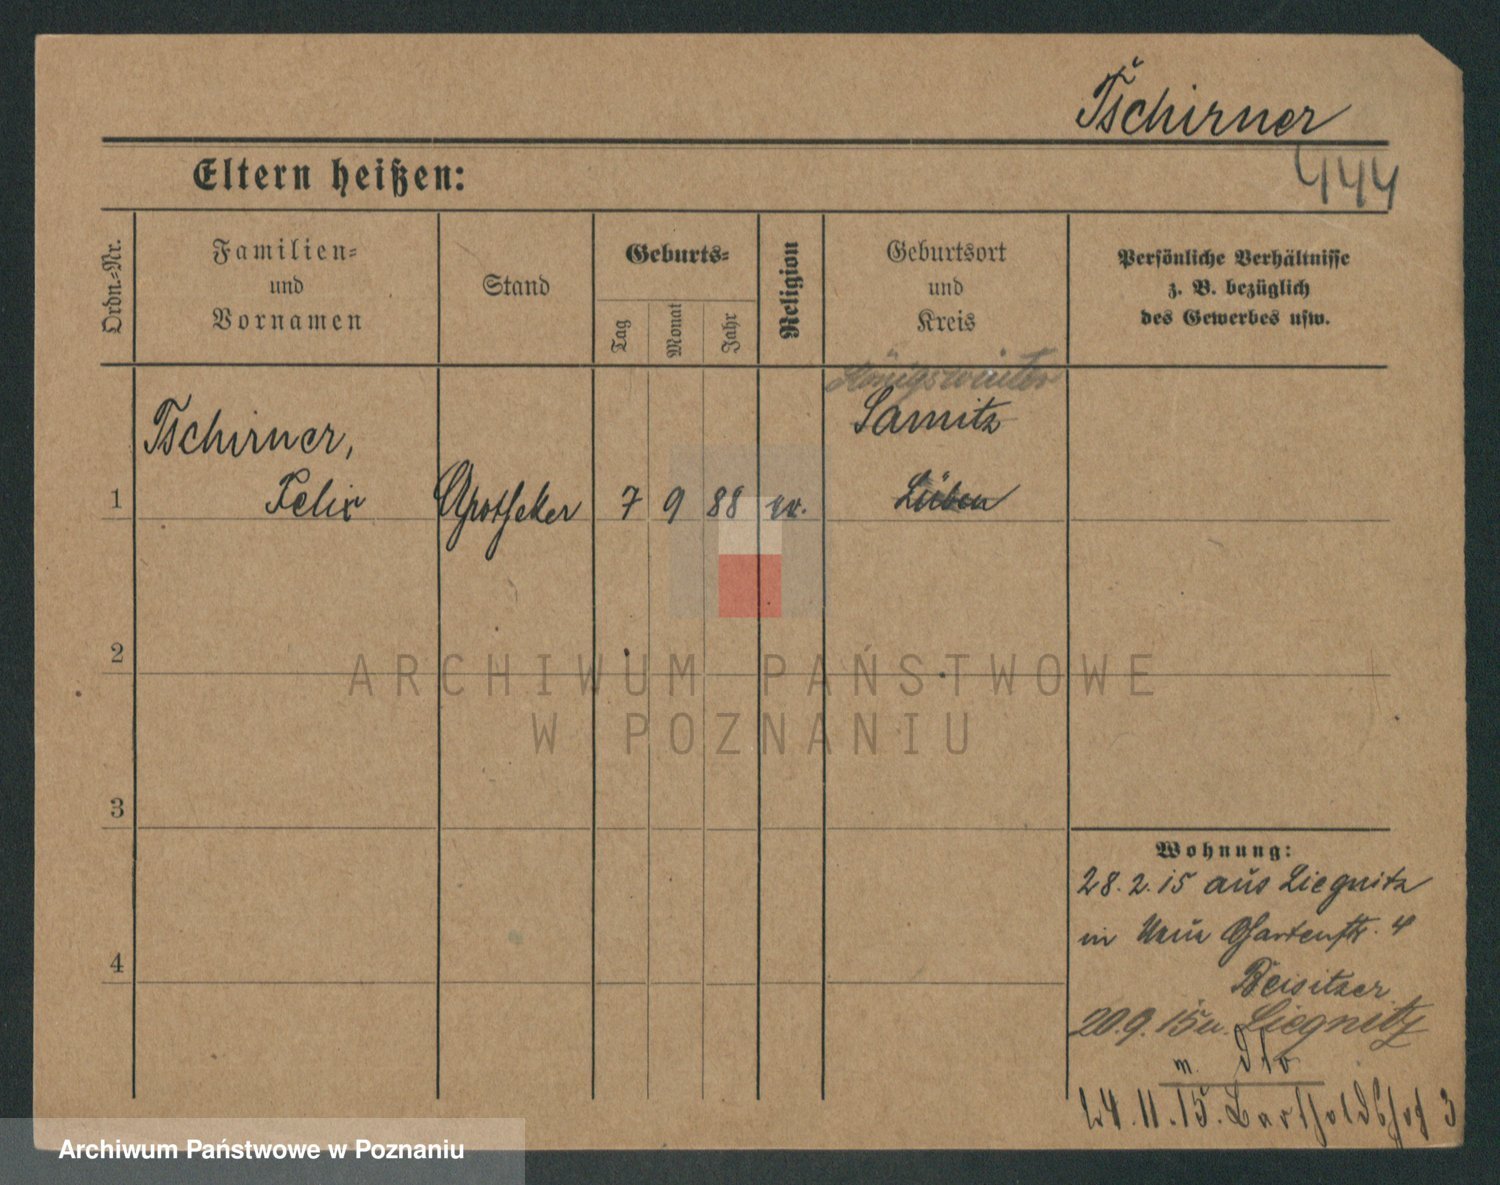 Tschirner
444
Eltern heißen:
Ordn.-Nr.
Familien-
und
Vornamen
Stand
Geburts-
Tag
Monat
Jahr
Religion
Geburtsort
und
Kreis
Persönliche Verhältnisse
z. B. bezüglich
des Gewerbes usw.
Königswinter
Samitz
Tschirner,
1 Felix Apotheker 7 9 88 ev. Lüben
2
ARCHIWUM PAŃSTWOWE
W POZNANIU
3
Wohnung:
28.2.15 aus Liegnitz
in Gartenstr. 4
4
Beisitzer
20.9.15 n. Liegnitz
24.11.15. Bartholdshof 3
Archiwum Państwowe w Poznaniu